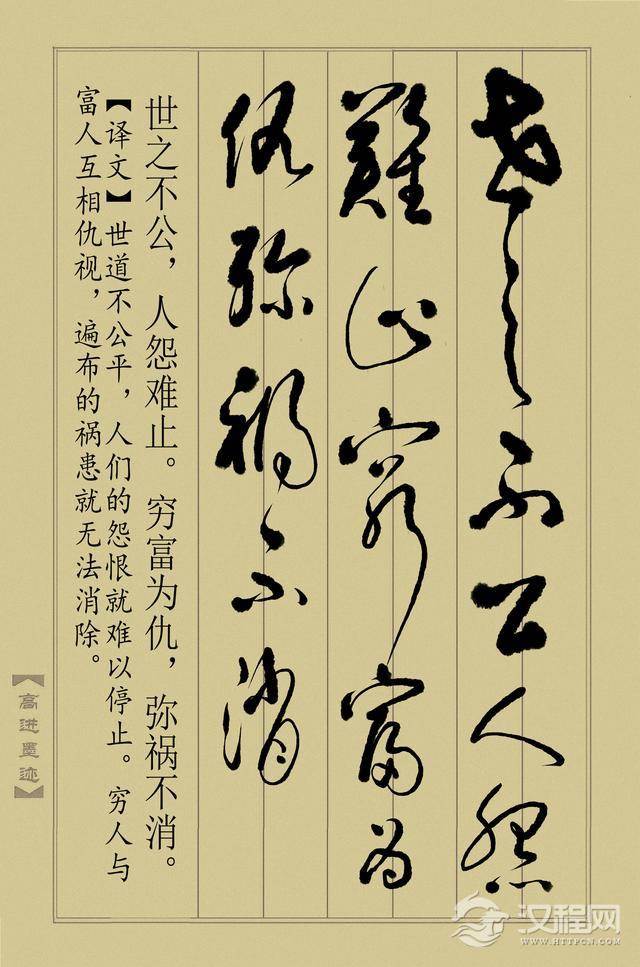 世之不公人怨
难止穷富为
仇弥祸不消
世之不公，人怨难止。穷富为仇，弥祸不消。
【译文】世道不公平，人们的怨恨就难以停止。穷人与
富人互相仇视，遍布的祸患就无法消除。
【高进墨迹】
汉程网
WWW.HTTPCN.COM